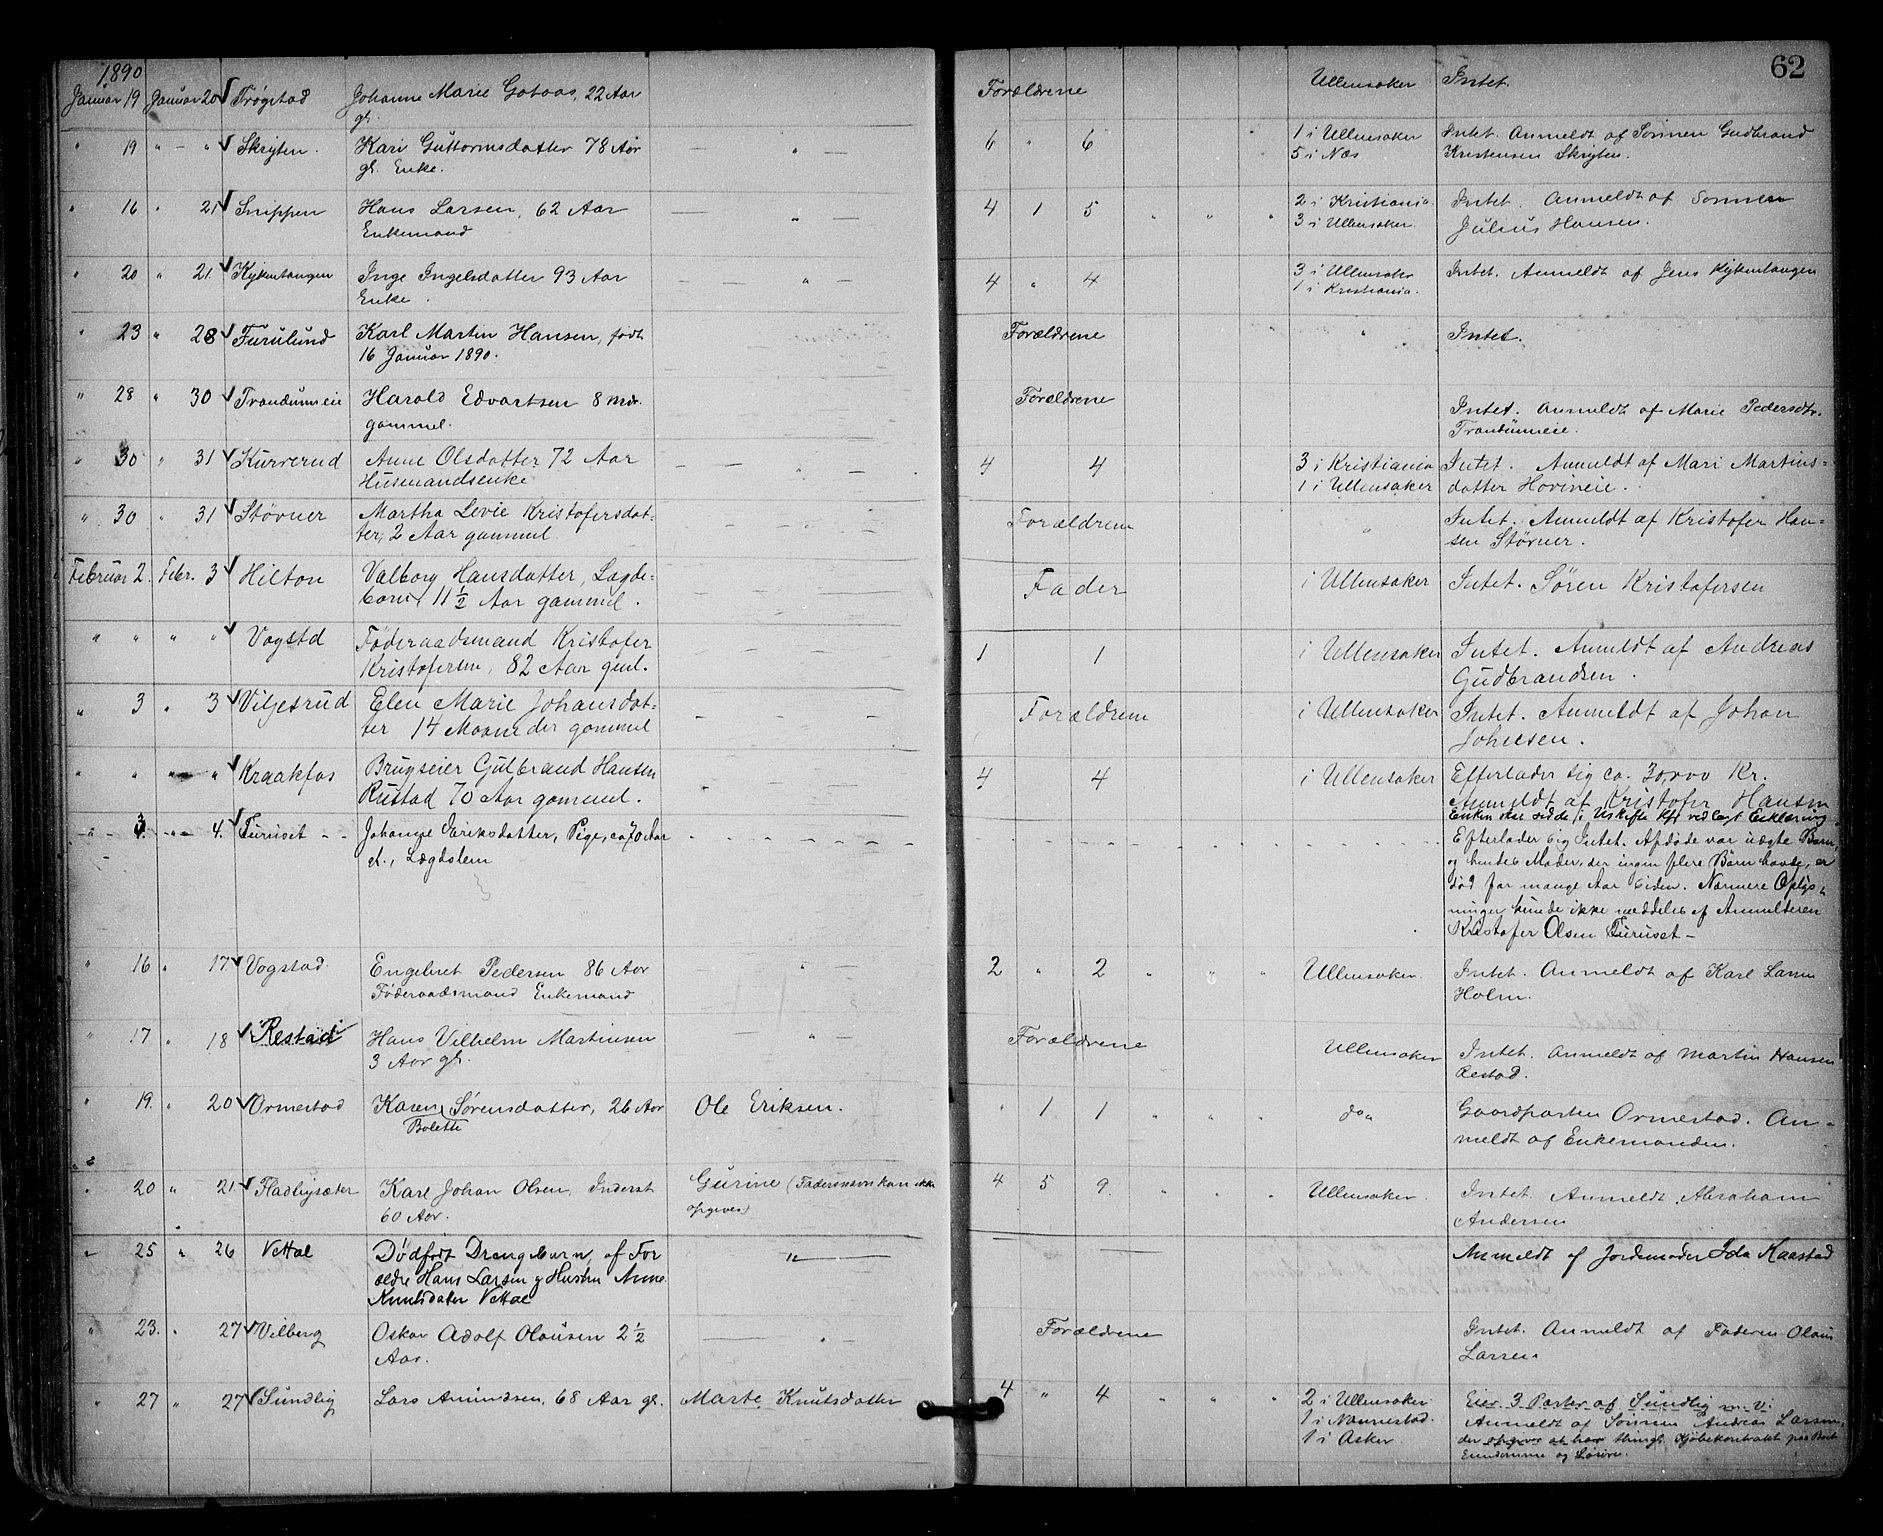 62
1890
Januar 19 Januar 20 Trøgstad Johanne Marie Gotaas, 22 Aar Forældrene Ullensaker Intet.
gl.
" 19 " - " Skryten. Kari Guttormsdatter 78 Aar — " — 6 " 6 1 i Ullensaker Intet. Anmeldt af Sønnen Gudbrand
gl. Enke. 5 i Næs Kristensen Skryten.
" 16 " 21 Snippen Hans Larsen, 62 Aar — " — 4 1 5 " " " 2 i Kristiania Intet. Anmeldt af Sønnen
Enkemand 3 i Ullensaker Julius Hansen.
" 20 " 21 Kykentangen Inge Ingelsdatter 93 Aar — — " — 4 " 4 3 i Ullensaker Intet. Anmeldt af Jens Kykentangen
Enke. 1 i Kristiania.
" 23 " 28 Furulund Karl Martin Hansen, født Forældrene " Intet.
16 Januar 1890.
" 28 " 30 Trandumeie Harald Edvartsen 8 Mdr. Forældrene Intet. Anmeldt af Marie Pedersdtr.
gammel. Trandumeie.
" 30 " 31 Kurverud Anne Olsdatter 72 Aar — — " — 4 4 3 i Kristiania Intet. Anmeldt af Mari Martins-
Husmandsenke 1 i Ullensaker datter Hovineie.
" 30 " 31 Størner Martha Levie Kristofersdat- — " — Forældrene " Intet. Anmeldt af Kristofer Han-
ter, 2 Aar gammel sen Størner.
Februar 2. Febr. 3 Hilton Valborg Hansdatter, Lægde- Fader i Ullensaker Intet. Søren Kristofersen
barn, 11 1/2 Aar gammel.
" " " " Vogstd Føderaadsmand Kristofer 1 1 i Ullensaker Intet. Anmeldt af Andreas
Kristofersen, 82 Aar gml. Gudbrandsen.
" 3 " 3 Viljesrud Elen Marie Johansdat- — — — Forældrene i Ullensaker Intet. Anmeldt af Johan
ter 14 Maaneder gammel Johnsen.
" " " " Kraakfos Brugseier Gulbrand Hansen 4 4 i Ullensaker Efterlader sig ca. 30,000 Kr.
Rustad 70 Aar gammel. Anmeldt af Kristofer Hansen
Enken skal sidde i Uskifte
" - 3. " - 4. Furuset - - Johanne Eriksdatter, Pige, ca 70 Aar Efterlader sig Intet. Afdøde var uægte Barn,
gl., Lægdslem og hendes Moder, der ingen flere Børn havde, er
død for mange Aar siden. Nærmere Oplys-
ninger kunde ikke meddeles af Anmelderen
Kristofer Olsen Furuset -
" 16 " 17 Vogstad. Engebret Pedersen 86 Aar " — 2 " 2 " " " Ullensaker. Intet. Anmeldt af Karl Larsen
Føderaadsmand Enkemand Holm.
" 17 " 18 Restad Hans Vilhelm Martinsen — " — Forældrene Ullensaker Intet. Anmeldt af Martin Hansen
3 Aar gl. Restad.
" 19. " 20 Ormestad Karen Sørensdatter, 26 Aar Ole Eriksen. " 1 1 " " " do " Gaardparten Ormestad. An-
Bolette meldt af Enkemanden.
" 20 " 21. Fladbysæter Karl Johan Olsen, Inderst Gurine (Faderensnavn kan ikke 4 5 9. " " " Ullensaker. Intet Anmeldt Abraham
60 Aar. opgives) Andersen
" 25 " 26 Vettal Dødfødt Drengebarn, af For " — Anmeldt af Jordemoder Ida Kaastad
ældre Hans Larsen og Hustru Anne
Knutsdatter Vettal
" 23. " 27 Vilberg Oskar Adolf Olausen 2 1/2 — " — Forældrene Intet. Anmeldt af Faderen Olaus
Aar. Larsen.
" 27 " 27 Sundlig Lars Amundsen, 68 Aar gl. Marte Knutsdatter 4 " 4 " " " 2 i Ullensaker Eier 3 Parter af Sundlig m. V.
1 i Nannestad. Anmeldt af Sønnen Andreas Larsen,
1 i Asker der opgiver at have thingl. Kjøbekontrakt paa
Eiendomme og Løsøre.